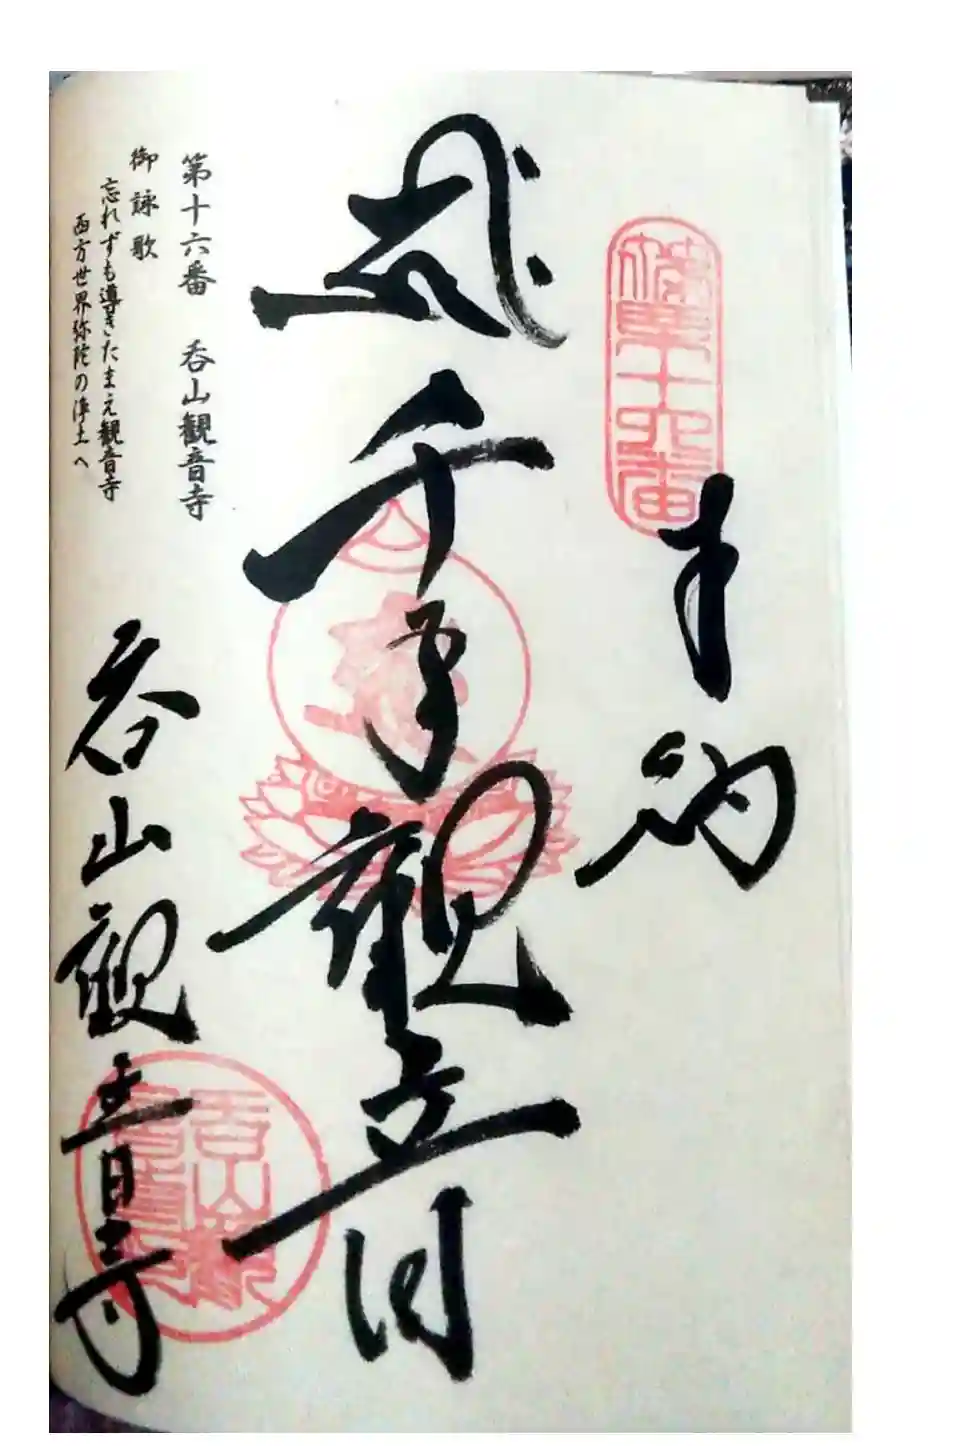 篠栗十六番
奉納
千手觀音
第十六番　呑山観音寺
御詠歌
忘れずも導きたまえ観音寺
西方世界弥陀の浄土へ
呑山觀音寺